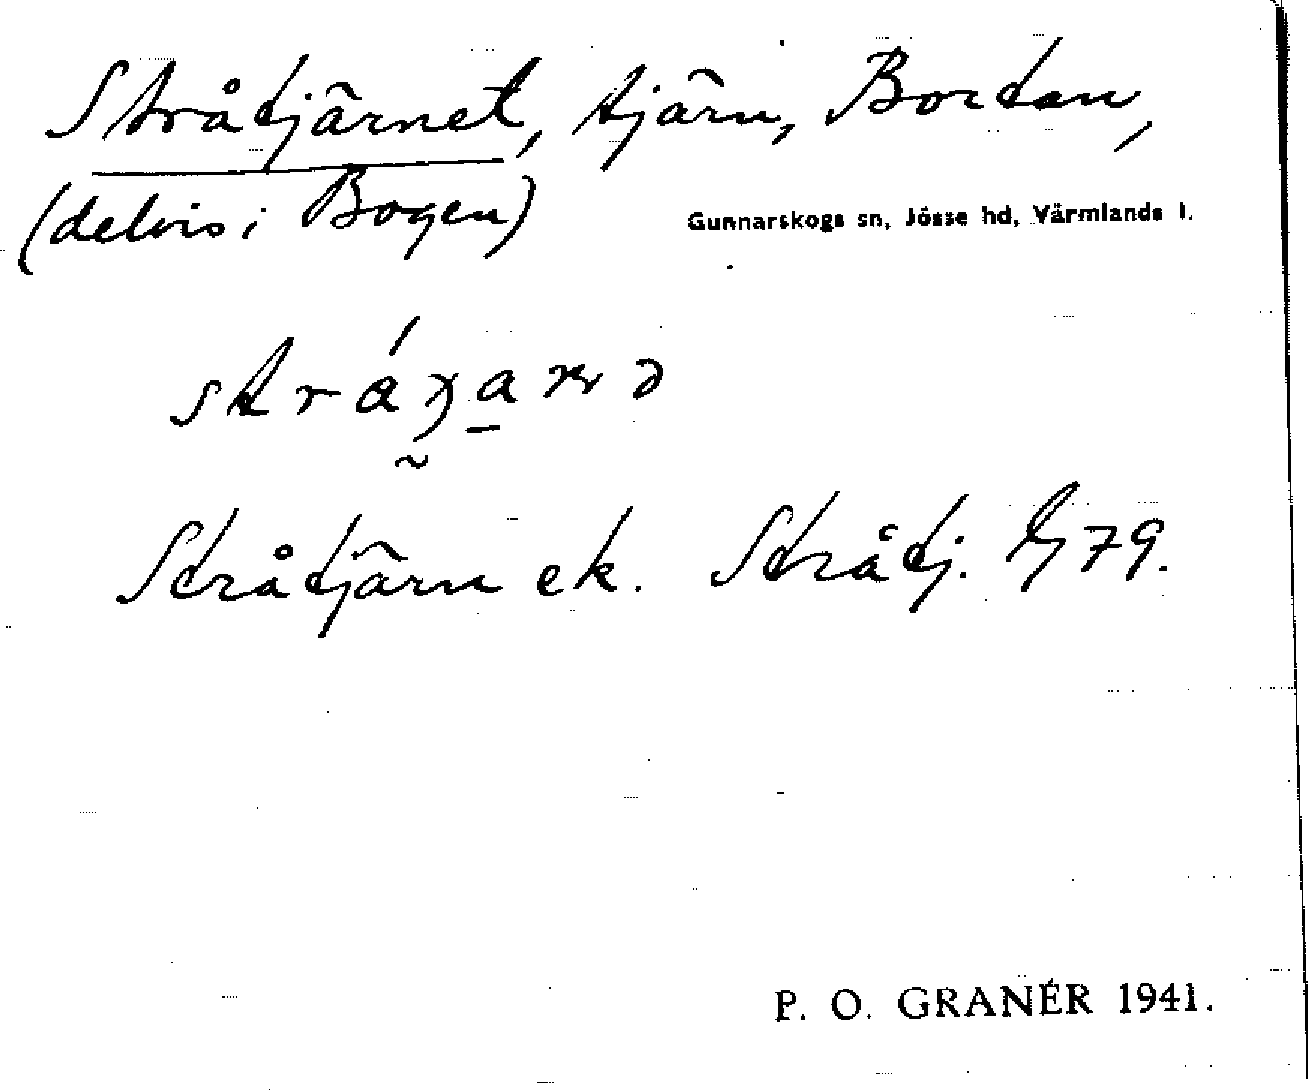 Stråtjärnet, tjärn, Bortan,
(delvis i Bogen)
Gunnarskogs sn, Jösse hd, Värmlands l.
Stråtjärn ek. Stråtj. 79.
P. O. GRANÉR 1941.